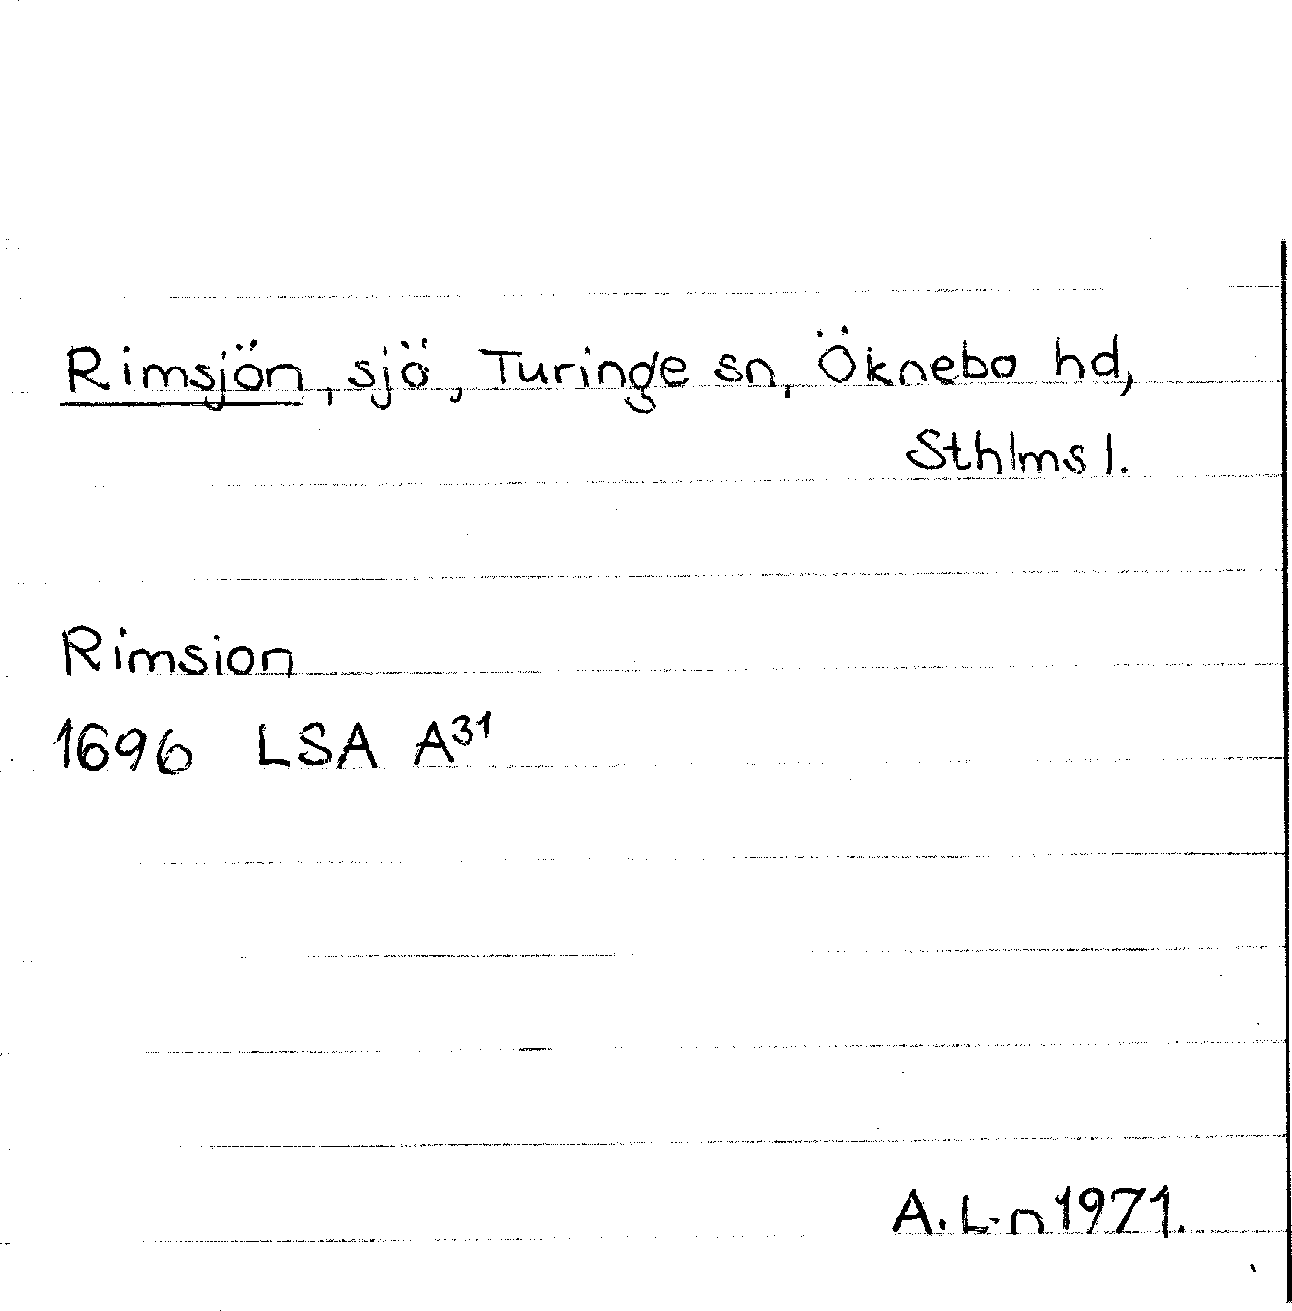 Rimsjön, sjö, Turinge sn, Öknebo hd,
Sthlms l.
Rimsion
1696 LSA A³¹
A. L-n 1971.